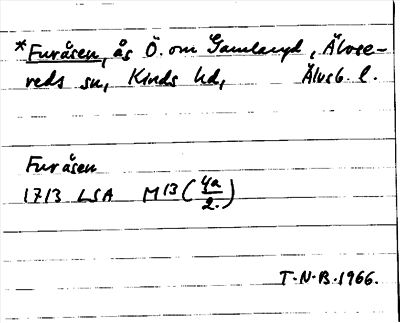 *Furåsen, ås Ö. om Gamlaryd, Älvse-
reds sn, Kinds hd, Älvsb. l.
Furåsen
1713 LSA M13 (4a/2.)
T.N.B. 1966.